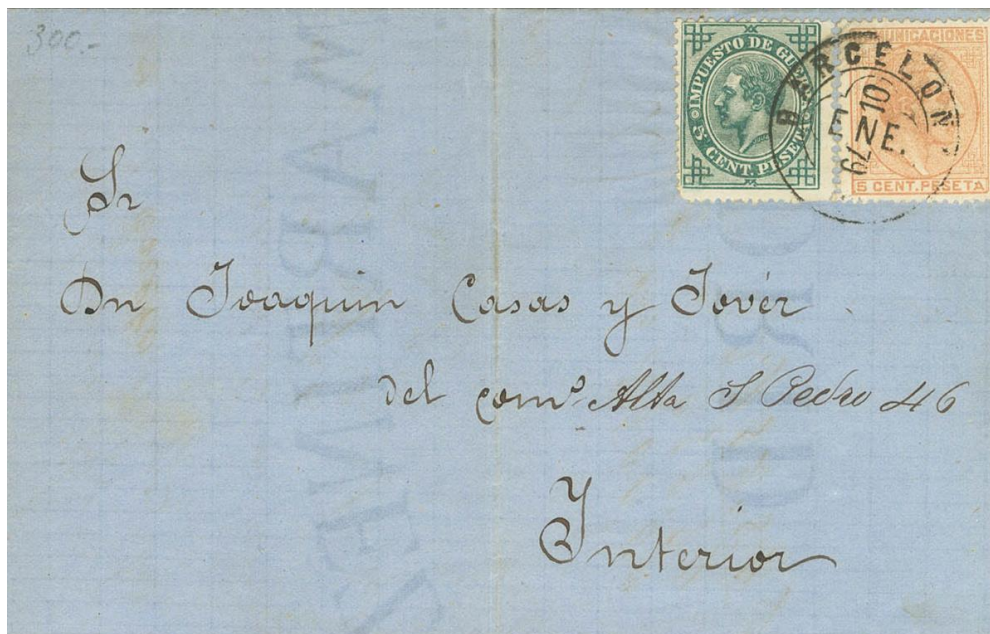 300.-
IMPUESTO DE GUE
5 CENT. PESETA
COMUNICACIONES
5 CENT. PESETA
BARCELON
10
ENE.
79
Sr
Dn Joaquin Casas y Jovér
del comº. Alta S Pedro 46
Interior